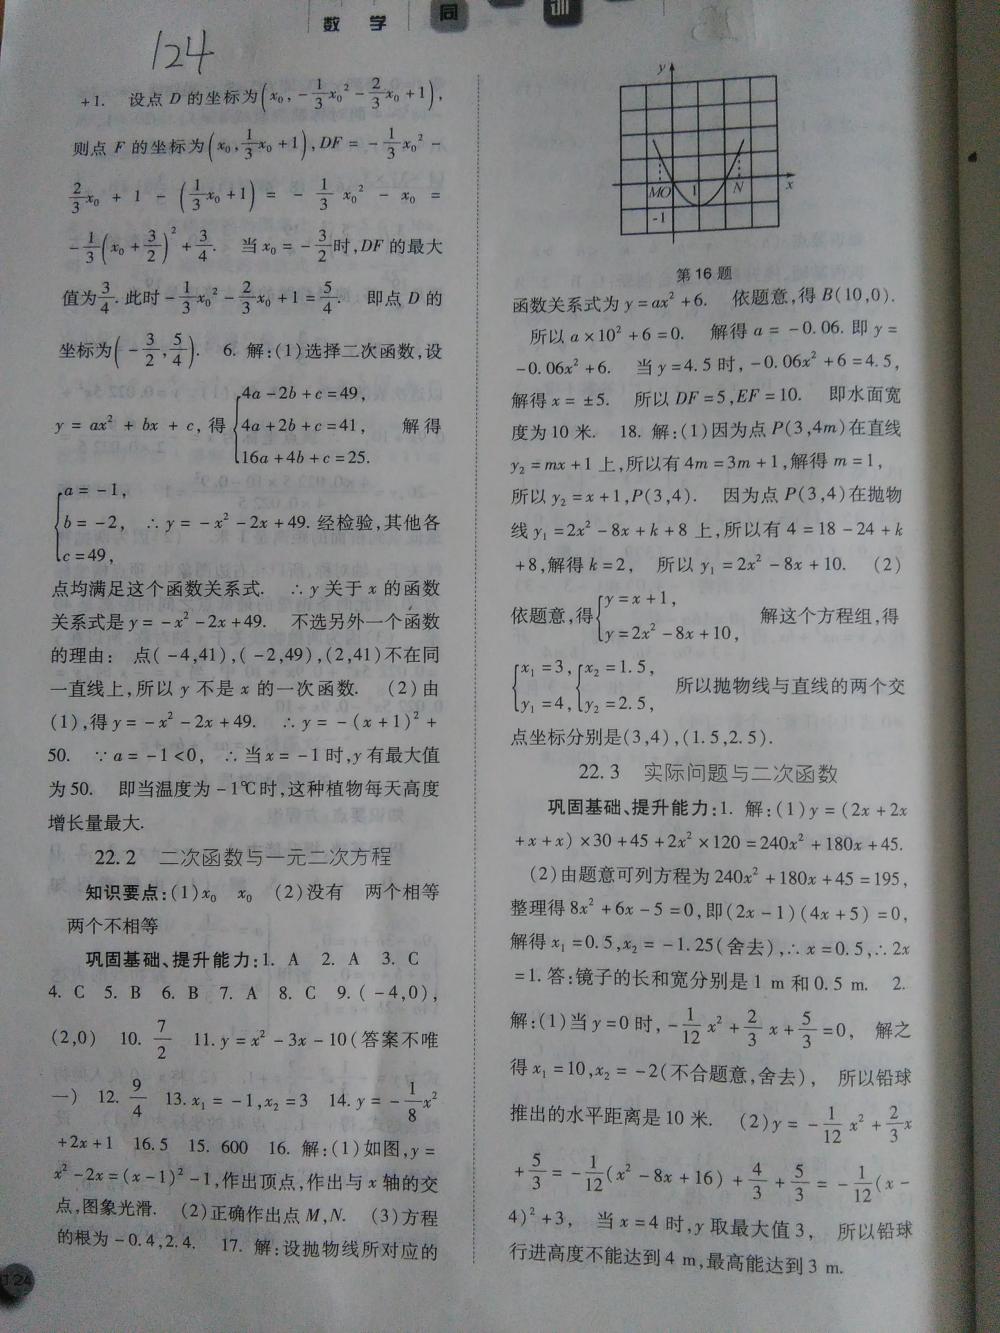 数 学 同 训
124
+1. 设点 D 的坐标为(x₀, -1/3x₀² - 2/3x₀ + 1),
则点 F 的坐标为(x₀, 1/3x₀ + 1), DF = -1/3x₀² -
2/3x₀ + 1 - (1/3x₀ + 1) = -1/3x₀² - x₀ =
-1/3(x₀ + 3/2)² + 3/4. 当 x₀ = -3/2时, DF 的最大
值为3/4. 此时 -1/3x₀² - 2/3x₀ + 1 = 5/4. 即点 D 的
坐标为(-3/2, 5/4). 6. 解:(1)选择二次函数,设
y = ax² + bx + c, 得 {4a - 2b + c = 49, 4a + 2b + c = 41, 16a + 4b + c = 25. 解得
{a = -1, b = -2, c = 49, ∴ y = -x² - 2x + 49. 经检验,其他各
点均满足这个函数关系式. ∴ y 关于 x 的函数
关系式是 y = -x² - 2x + 49. 不选另外一个函数
的理由: 点(-4,41),(-2,49),(2,41)不在同
一直线上,所以 y 不是 x 的一次函数. (2)由
(1),得 y = -x² - 2x + 49. ∴ y = -(x + 1)² +
50. ∵ a = -1 < 0, ∴ 当 x = -1 时, y 有最大值
为 50. 即当温度为 -1℃时,这种植物每天高度
增长量最大.
22.2 二次函数与一元二次方程
知识要点:(1)x₀ x₀ (2)没有 两个相等
两个不相等
巩固基础、提升能力:1. A 2. A 3. C
4. C 5. B 6. B 7. A 8. C 9. (-4,0),
(2,0) 10. 7/2 11. y = x² - 3x - 10(答案不唯
一) 12. 9/4 13. x₁ = -1, x₂ = 3 14. y = -1/8x²
+2x + 1 16.5 15. 600 16. 解:(1)如图, y =
x² - 2x = (x - 1)² - 1, 作出顶点,作出与 x 轴的交
点,图象光滑. (2)正确作出点 M,N. (3)方程
的根为 -0.4,2.4. 17. 解:设抛物线所对应的
124
y
MO 1 N x
-1
第 16 题
函数关系式为 y = ax² + 6. 依题意,得 B(10,0).
所以 a × 10² + 6 = 0. 解得 a = -0.06. 即 y =
-0.06x² + 6. 当 y = 4.5 时, -0.06x² + 6 = 4.5,
解得 x = ±5. 所以 DF = 5, EF = 10. 即水面宽
度为 10 米. 18. 解:(1)因为点 P(3,4m)在直线
y₂ = mx + 1 上,所以有 4m = 3m + 1,解得 m = 1,
所以 y₂ = x + 1, P(3,4). 因为点 P(3,4)在抛物
线 y₁ = 2x² - 8x + k + 8 上,所以有 4 = 18 - 24 + k
+8,解得 k = 2, 所以 y₁ = 2x² - 8x + 10. (2)
依题意,得 {y = x + 1, y = 2x² - 8x + 10, 解这个方程组,得
{x₁ = 3, y₁ = 4, {x₂ = 1.5, y₂ = 2.5, 所以抛物线与直线的两个交
点坐标分别是(3,4),(1.5,2.5).
22.3 实际问题与二次函数
巩固基础、提升能力:1. 解:(1) y = (2x + 2x
+x + x) × 30 + 45 + 2x² × 120 = 240x² + 180x + 45.
(2)由题意可列方程为 240x² + 180x + 45 = 195,
整理得 8x² + 6x - 5 = 0,即(2x - 1)(4x + 5) = 0,
解得 x₁ = 0.5, x₂ = -1.25(舍去), ∴ x = 0.5, ∴ 2x
=1. 答:镜子的长和宽分别是 1 m 和 0.5 m. 2.
解:(1)当 y = 0 时, -1/12x² + 2/3x + 5/3 = 0, 解之
得 x₁ = 10, x₂ = -2(不合题意,舍去), 所以铅球
推出的水平距离是 10 米. (2) y = -1/12x² + 2/3x
+5/3 = -1/12(x² - 8x + 16) + 4/3 + 5/3 = -1/12(x -
4)² + 3, 当 x = 4 时, y 取最大值 3, 所以铅球
行进高度不能达到 4 m,最高能达到 3 m.